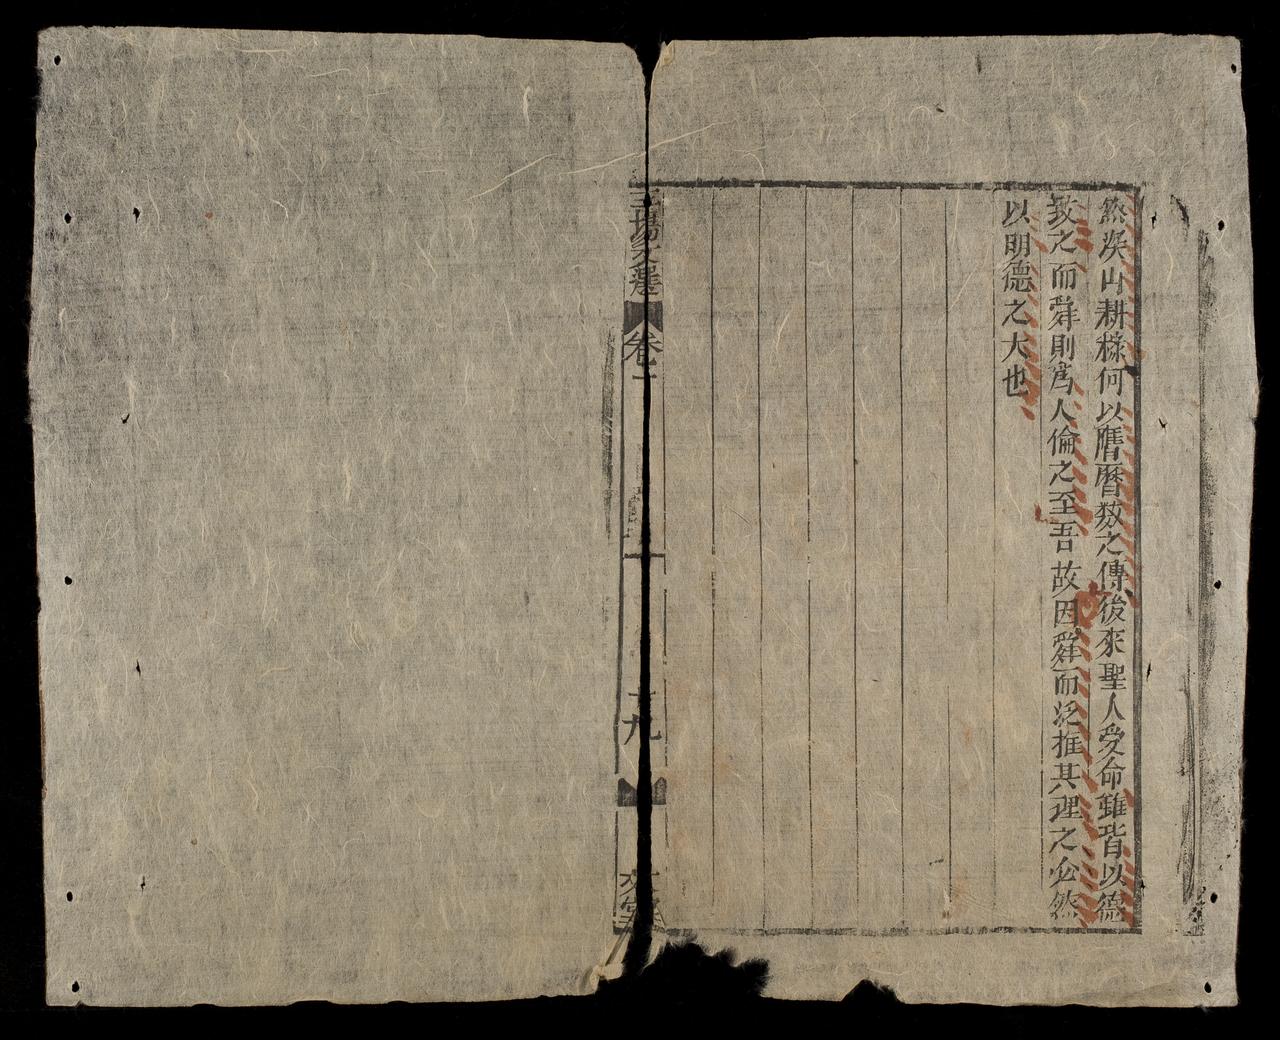 然深山耕稼何以膺曆数之傳後來聖人受命雖皆以德
致之而舜則爲人倫之至吾故因舜而泛推其理之必然
以明德之大也
場文選
卷一
十九
文堂